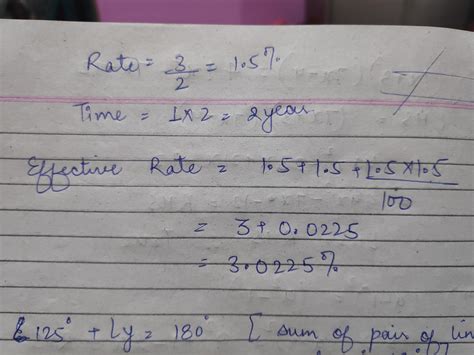 Rate = 3/2 = 1.5%
Time = 1×2 = 2 year
Effective Rate = 1.5 + 1.5 + 1.5×1.5/100
= 3 + 0.0225
= 3.0225%
125° + Ly = 180° [ sum of pair of lin